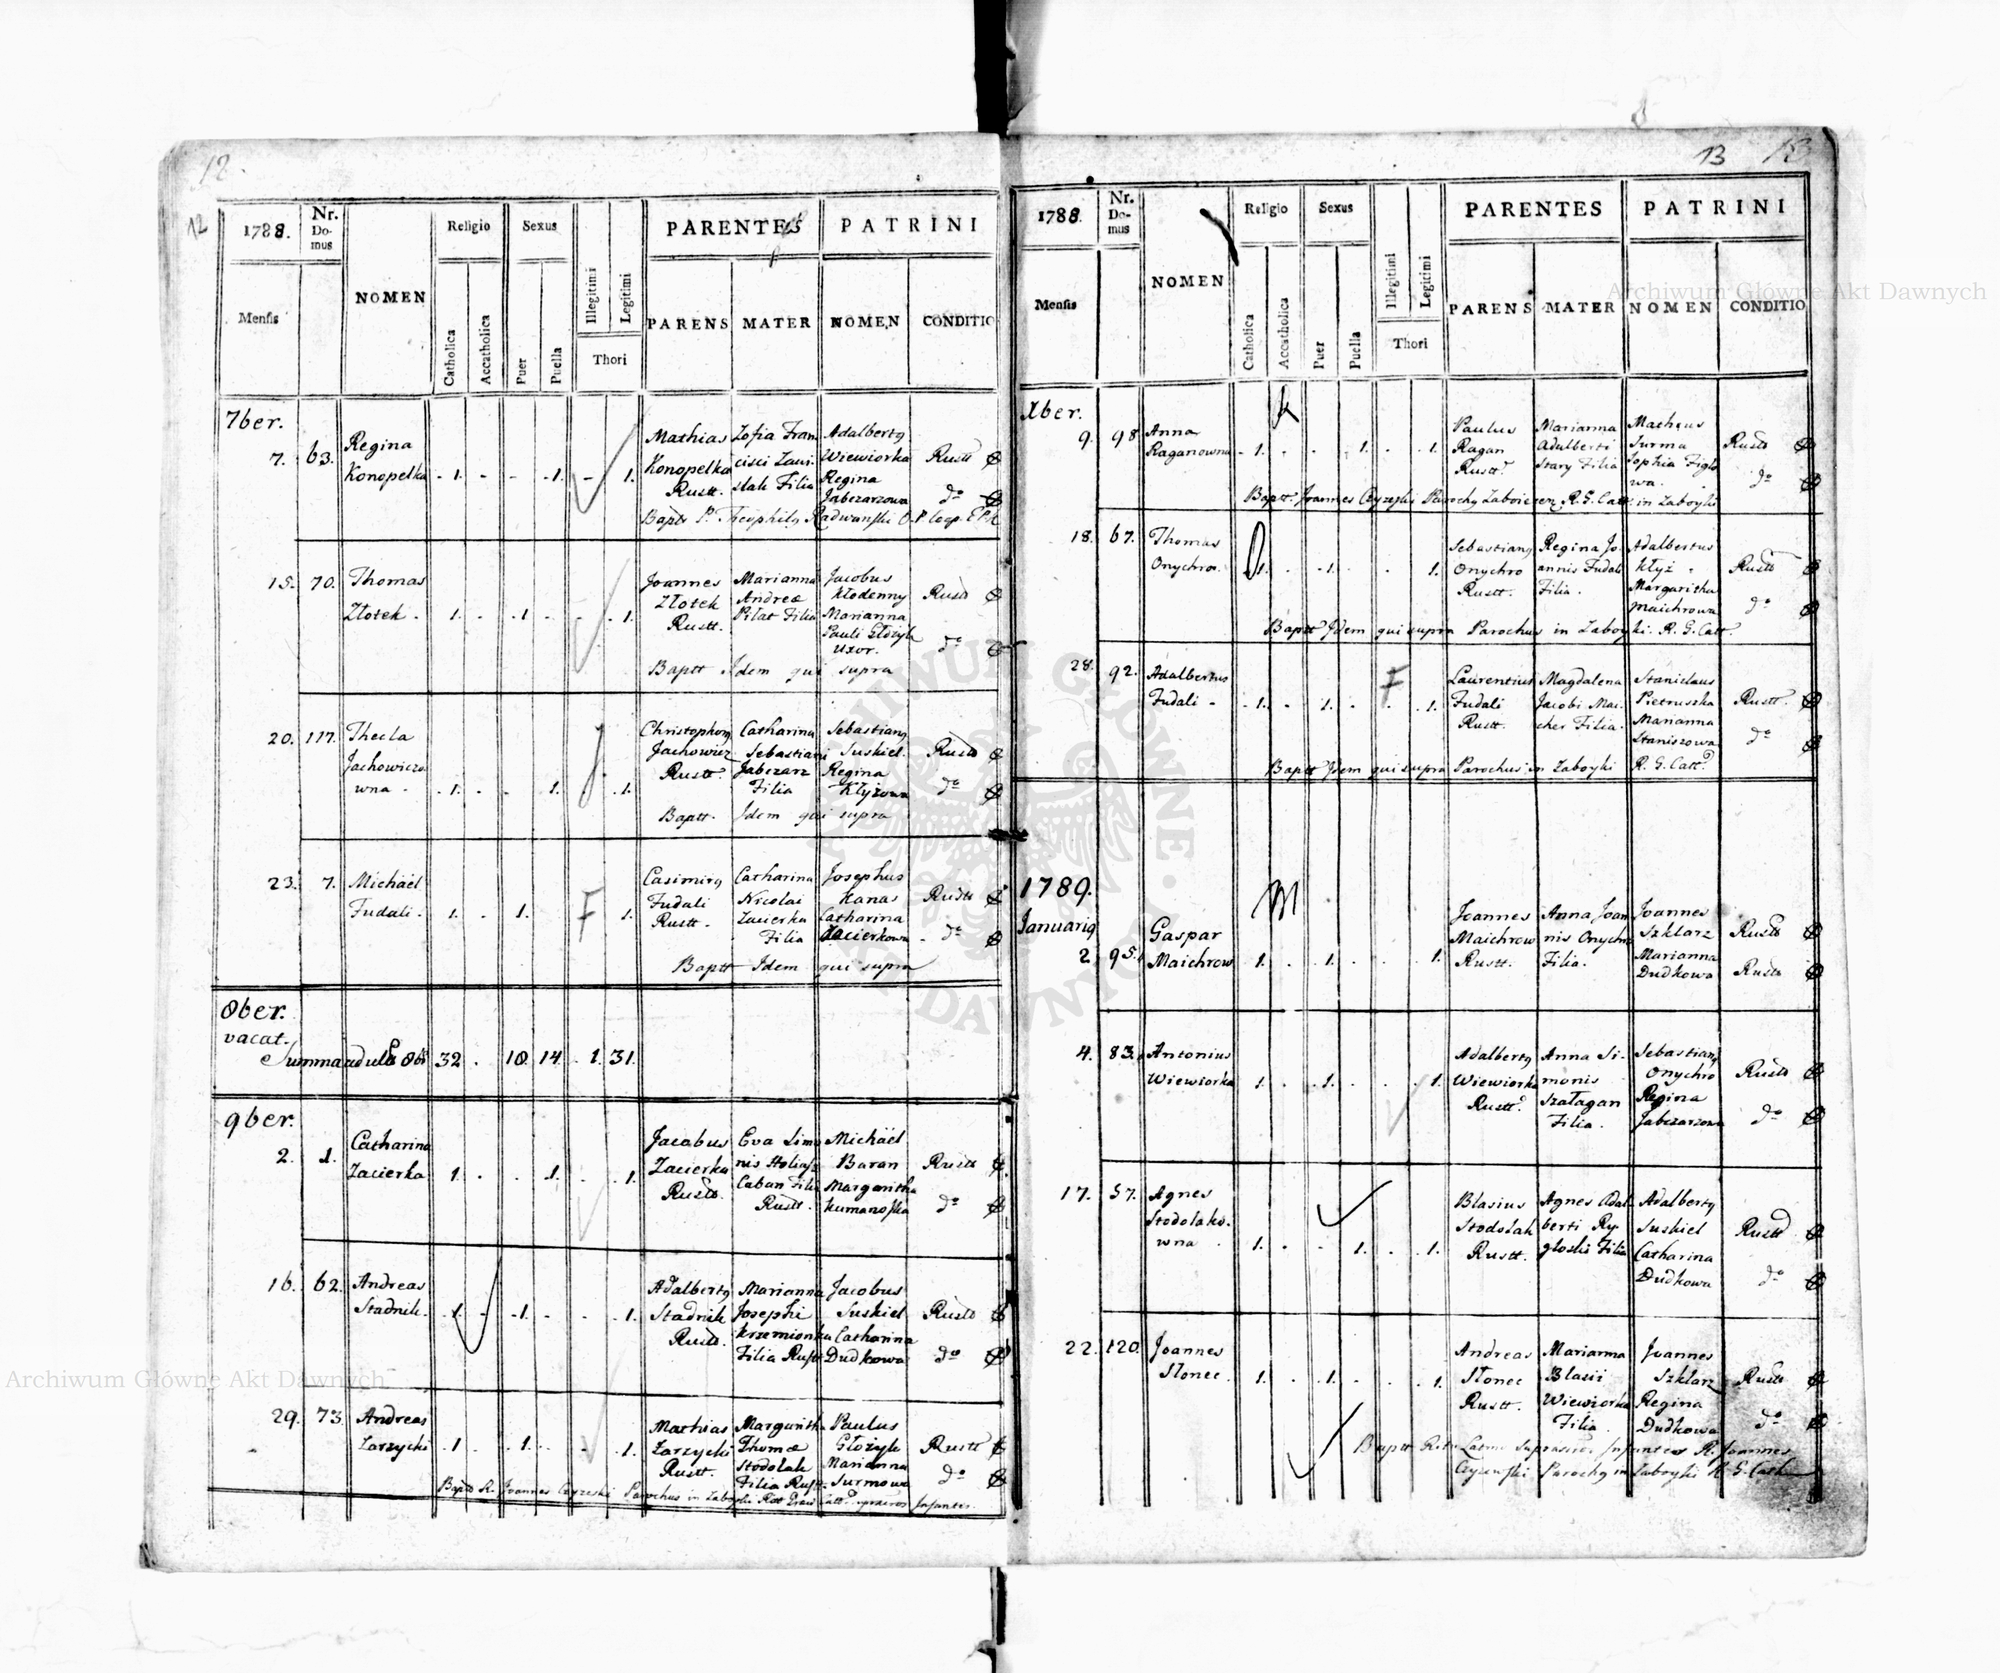 12
12
1788.
Nr. Do- mus
NOMEN
Religio
Sexus
PARENTES
PATRINI
Mensis
Catholica
Accatholica
Puer
Puella
Illegitimi
Legitimi
Thori
PARENS
MATER
NOMEN
CONDITIO
7ber.
7. 63. Regina Mathias Zofia Fran Adalberty
Konopelka - 1. - - .1. - 1. Konopelka cisci Zawi- Wiewiorka Rustt
Rustt. slak Filia Regina
Jabczarzowa do
Bapts P. Theophily Radwanski
15. 70. Thomas Joannes Marianna Jacobus
Złotek . 1. .1. . 1. Złotek Andreæ Kłodenny Rustt
Rustt. Piłat Filia Marianna
Pauli Głożyk
Uxor. do
Baptt Idem qui supra
20. 117. Thecla Christophory Catharina Sebastiany
Jachowiczo Jachowicz Sebastiani Suskiel Rustt
wna . 1. . . 1. .1. Rustt. Jabczarz Regina
Filia Kłyżowa do
Baptt. Idem qui supra
23. 7. Michäel Casimiry Catharina Josephus
Fudali . 1. . 1. F 1. Fudali Nicolai Kanas Rustt
Rustt. Zacierka Catharina
Filia Zacierkowa do
Baptt Idem qui supra
8ber.
vacat.
Summa 32 . 18 14 . 1. 31.
9ber.
2. 1. Catharina Jacobus Eva Simo Michäel
Zacierka 1. . . 1. . 1. Zacierka nis Baran Rustt
Rustt. Caban Filia Margaritha
Rustt. Kumanoska do
16. 62. Andreas Adalberty Marianna Jacobus
Stadnik. .1. - .1. . . 1. Stadnik Josephi Suskiel Rustt
Rustt. Krzemionka Catharina
Filia Rustt Dudkowa do
29. 73. Andreas Mathias Margarith Paulus
Zarzycki .1. . .1. . . 1. Zarzycki Thomæ Głożyk Rustt
Rustt. Stodolak Marianna
Filia Rustt. Surmowa do
Baptt R. Joannes Czyzeski Parochus in Zaboyki
13
1788.
Nr. Do- mus
NOMEN
Religio
Sexus
PARENTES
PATRINI
Mensis
Catholica
Accatholica
Puer
Puella
Illegitimi
Legitimi
Thori
PARENS
MATER
NOMEN
CONDITIO
Xber.
9. 98. Anna Paulus Marianna Matheus
Raganowna - 1. . . 1. . 1. Ragan Adalberti Surma Rustt
Rustt. Stary Filia Sophia Figlo
wa. do
Baptt. Joannes Czyzeski Parochy R. G. Catt. in Zaboyki
18. 67. Thomas Sebastiany Regina Jo- Adalbertus
Onychro. 1. . .1. . 1. Onychro annis Fudali Kłyż Rustt
Rustt. Filia. Margaritha
Maichrowa do
Baptt Idem qui supra Parochus in Zaboyki. R. G. Catt.
28. 92. Adalbertus F Laurentius Magdalena Stanislaus
Fudali - . 1. . 1. . . 1. Fudali Jacobi Mai- Pietruszka Rustt.
Rustt. cher Filia. Marianna
Staniszowa do
Baptt Idem qui supra Parochus in Zaboyki R. G. Catt.
1789.
Januariy Joannes Anna Joan Joannes
Gaspar Maichrow nis Onychro Szklarz Rustt
2. 95. Maichrow 1. . 1. . . 1. Rustt. Filia. Marianna
Dudkowa Rustt
4. 83. Antonius Adalberty Anna Si- Sebastiany
Wiewiorka 1. . .1. . . 1. Wiewiorka monis Onychro Rustt
Rustt. Szałagan Regina
Filia. Jabczarzowa do
17. 57. Agnes Blasius Agnes Adal- Adalberty
Stodolako- Stodolak berti Ry- Suskiel Rustt
wna . 1. . . 1. . 1. Rustt. gloski Filia Catharina
Dudkowa do
22. 120. Joannes Andreas Marianna Joannes
Słonec . 1. . 1. . . 1. Słonec Blasii Szklarz Rustt
Rustt. Wiewiorka Regina
Filia. Dudkowa do
Baptt Ritu Latino Infantes R. Joannes
Czyzewski Parochy in Zaboyki R. G. Cath
Archiwum Główne Akt Dawnych
Archiwum Główne Akt Dawnych
ARCHIWUM GŁÓWNE AKT DAWNYCH